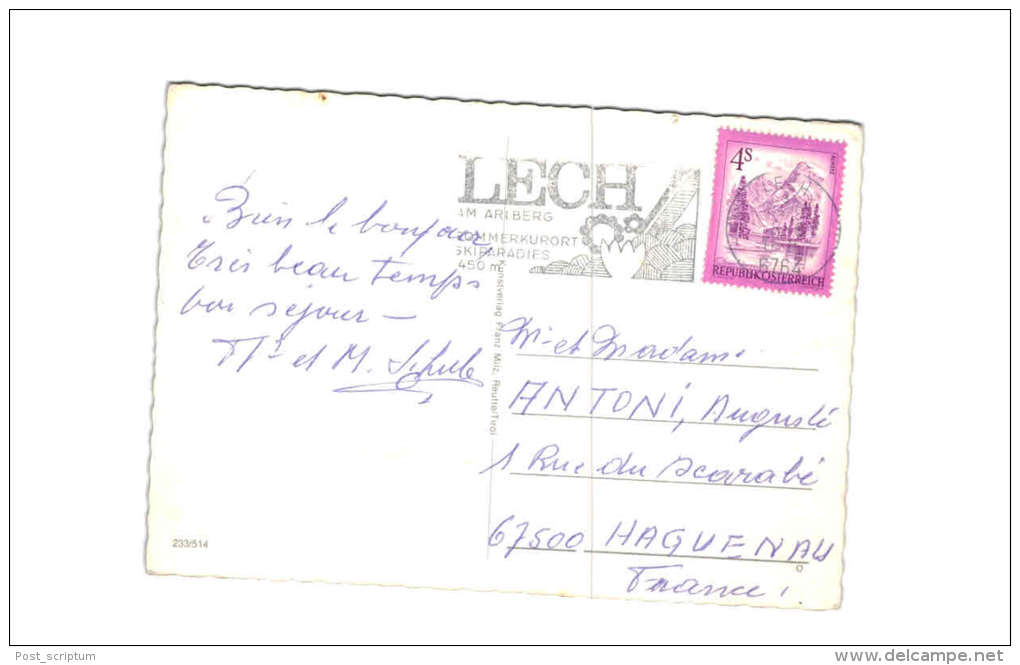 LECH
AM ARLBERG
OMMERKURORT
SKIPARADIES
450 m
4S
REPUBLIK ÖSTERREICH
6764
Bien le bonjour
Très beau temps
bon séjour –
et M.
Kunstverlag Franz Milz, Reutte/Tirol
M. et Madame
ANTONI, Auguste
1 Rue du Scarabé
67500 HAGUENAU
France.
233/514
Post_scriptum
delcampe.net